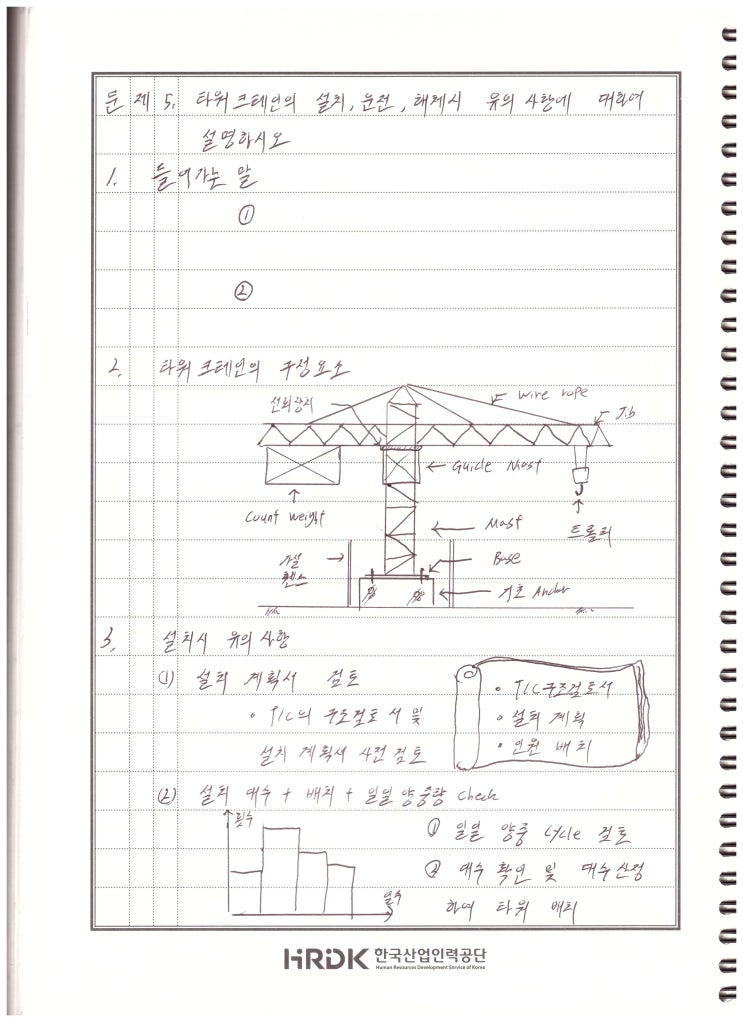 문제 5. 타워크레인의 설치, 운전, 해체시 유의사항에 대하여
설명하시오
1. 들어가는 말
①
②
2. 타워크레인의 구성요소
선회장치
wire rope
Jib
Guide Mast
Count Weight
Mast
트롤리
가설
휀스
Base
기초 Anchor
3. 설치시 유의사항
(1) 설치 계획서 검토
• T/C의 구조검토서 및
설치 계획서 사전 검토
• T/C구조검토서
• 설치 계획
• 인원 배치
(2) 설치 대수 + 배치 + 일일 양중량 Check
횟수
일수
① 일일 양중 Cycle 검토
② 대수 확인 및 대수산정
하여 타워 배치
HRDK 한국산업인력공단
Human Resources Development Service of Korea